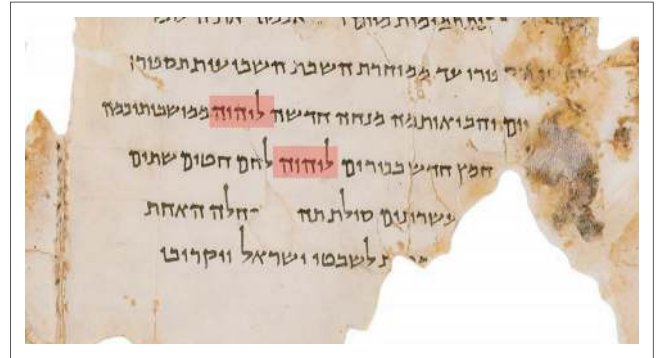 עד ממוחרת השבת השביעית תספורו
יום והביאותמה מנחה חדשה ליהוה ממושבותיכמה
חמץ חדש בכורים ליהוה לחם חטים שתים
עשרונים סולת האחת
לשבטי ישראל ויקריבו